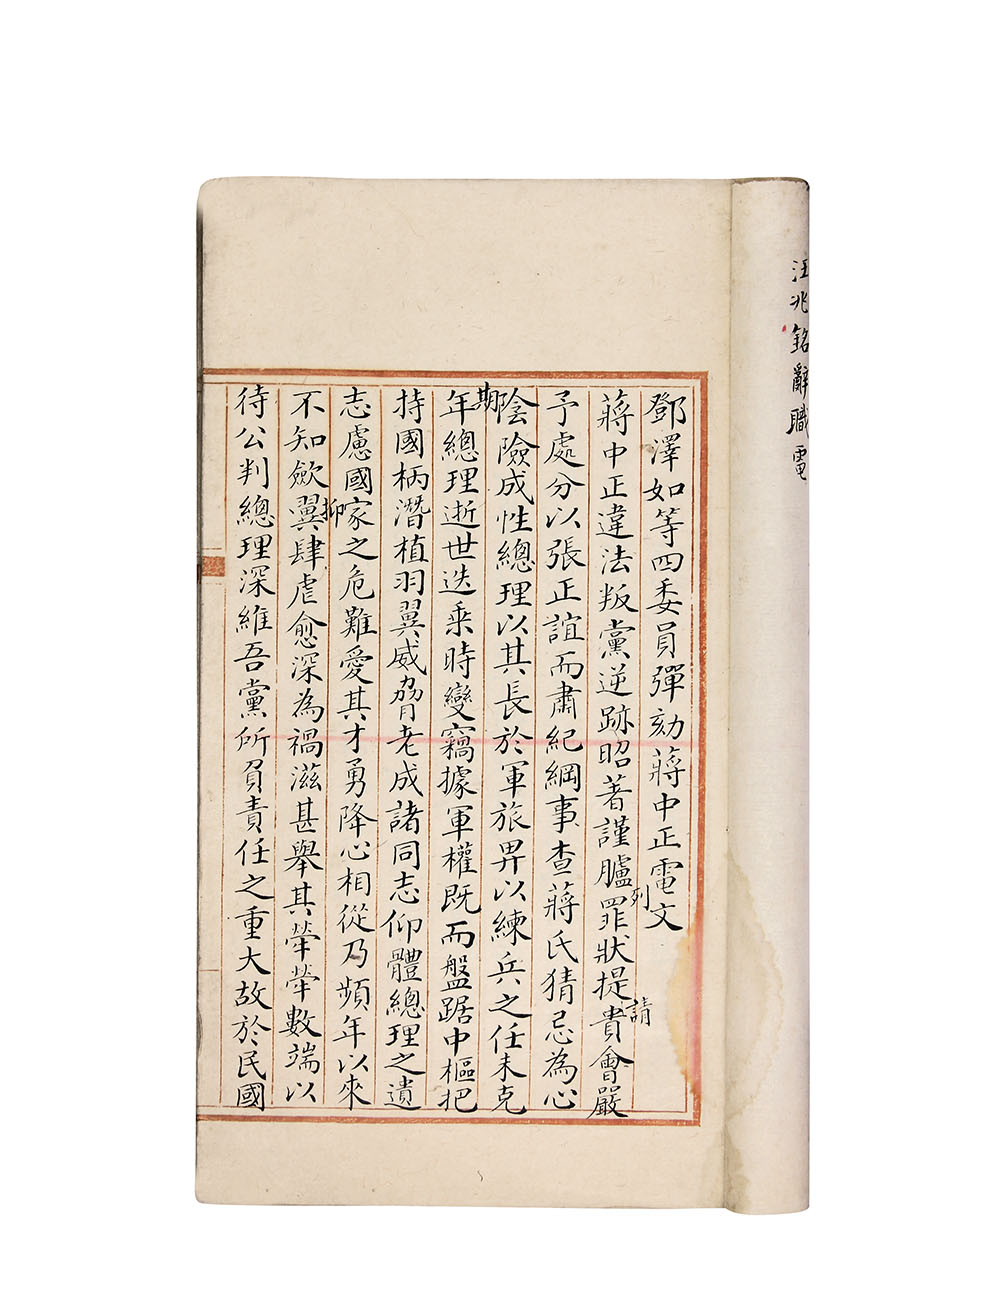 汪兆銘辭職電
鄧澤如等四委員彈劾蔣中正電文
蔣中正違法叛黨逆跡昭著謹臚列罪狀提請貴會嚴
予處分以張正誼而肅紀綱事查蔣氏猜忌為心
陰險成性總理以其長於軍旅畀以練兵之任未克
期年總理逝世迭乘時變竊據軍權既而盤踞中樞把
持國柄潛植羽翼威脅老成諸同志仰體總理之遺
志慮國家之危難愛其才勇降心相從乃頻年以來
不知歛翼抑肆虐愈深為禍滋甚舉其犖犖數端以
待公判總理深維吾黨所負責任之重大故於民國